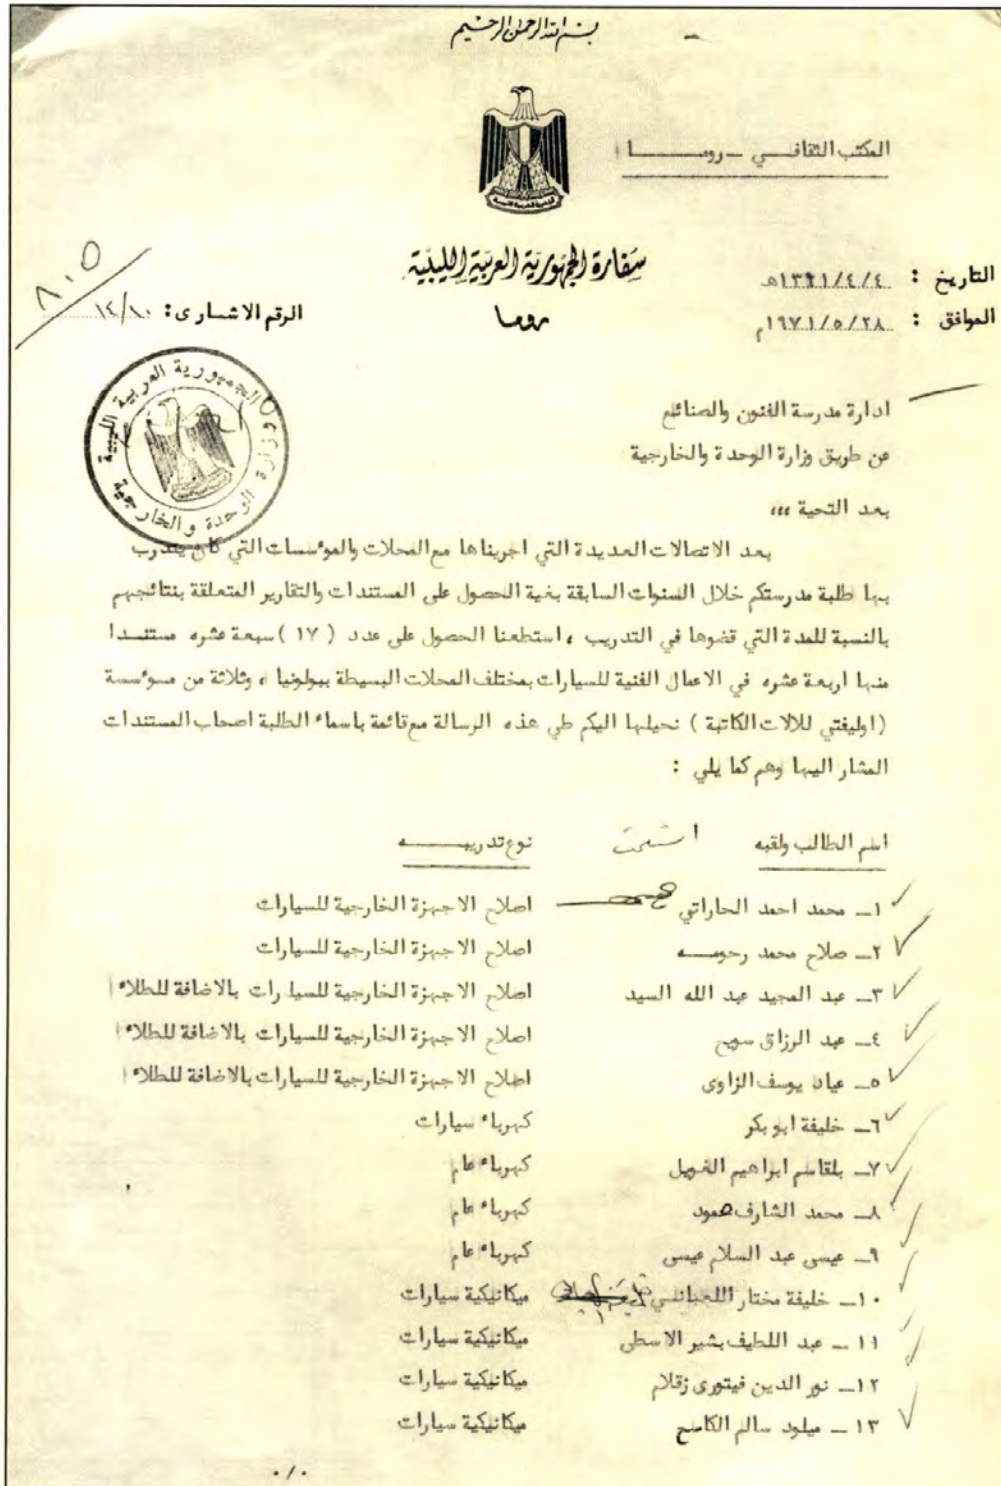 بسم الله الرحمن الرحيم
المكتب الثقافـــي ــ رومــــــا
سفارة الجمهورية العربية الليبية
روما
التاريخ : ١٣٩١/٤/٤هـ
الموافق : ١٩٧١/٥/٢٨م
الرقم الاشارى : ١٤/١٠
٨٠٥
الجمهورية العربية الليبية
وزارة الوحدة والخارجية
ادارة مدرسة الفنون والصنائع
عن طريق وزارة الوحدة والخارجية
بعد التحية ،،،
بعد الاتصالات العديدة التي اجريناها مع المحلات والمؤسسات التي كان يتدرب
بها طلبة مدرستكم خلال السنوات السابقة بغية الحصول على المستندات والتقارير المتعلقة بنتائجهم
بالنسبة للمدة التي قضوها في التدريب ، استطعنا الحصول على عدد ( ١٧ ) سبعة عشره مستنـــدا
منها اربعة عشره في الاعمال الفنية للسيارات بمختلف المحلات البسيطة ببولونيا ، وثلاثة من مــؤسسة
(اوليفتي للالات الكاتبة ) نحيلها اليكم طي هذه الرسالة مع قائمة باسماء الطلبة اصحاب المستندات
المشار اليها وهم كما يلي :
اسم الطالب ولقبه استلمت نوع تدريبـــــــه
١ــ محمد احمد الحاراتي اصلاح الاجهزة الخارجية للسيارات
٢ــ صلاح محمد رحومــــه اصلاح الاجهزة الخارجية للسيارات
٣ــ عبد المجيد عبد الله السيد اصلاح الاجهزة الخارجية للسيارات بالاضافة للطلاء
٤ــ عبد الرزاق سويح اصلاح الاجهزة الخارجية للسيارات بالاضافة للطلاء
٥ــ عياد يوسف الزاوى اصلاح الاجهزة الخارجية للسيارات بالاضافة للطلاء
٦ــ خليفة ابو بكر كهرباء سيارات
٧ــ بلقاسم ابراهيم الغويل كهرباء عام
٨ــ محمد الشارف حمود كهرباء عام
٩ــ عيسى عبد السلام عيسى كهرباء عام
١٠ــ خليفة مختار ميكانيكية سيارات
١١ ــ عبد اللطيف بشير الاسطى ميكانيكية سيارات
١٢ــ نور الدين فيتورى زقلام ميكانيكية سيارات
١٣ ــ ميلود سالم الكاسح ميكانيكية سيارات
٠/٠